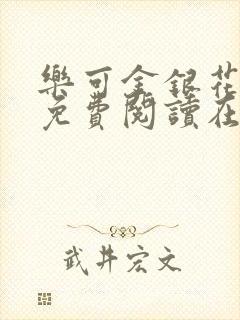 樂可金銀花
免費閱讀在
武井宏文